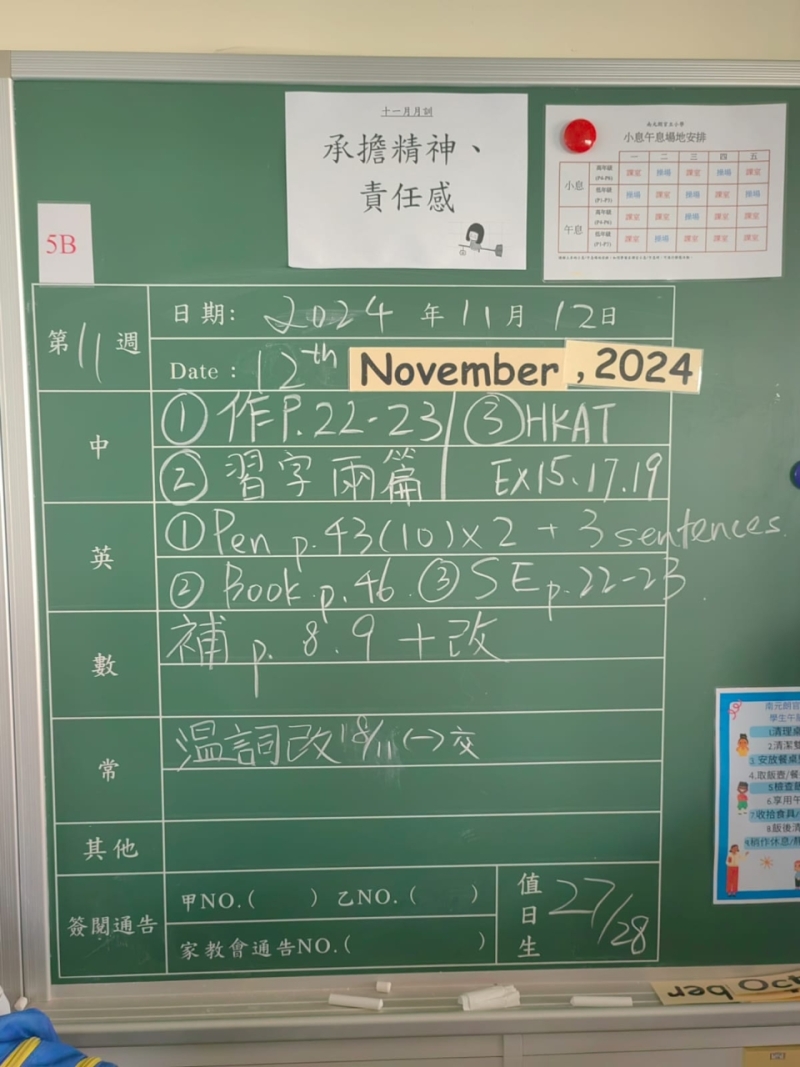 十一月月訓
承擔精神、
責任感
小息午息場地安排
一 二 三 四 五
小息 高年級 (P4-P6) 課室 操場 課室 操場 課室
低年級 (P1-P3) 操場 課室 操場 課室 操場
午息 高年級 (P4-P6) 課室 課室 操場 課室 課室
低年級 (P1-P3) 課室 操場 課室 課室 課室
5B
第11週
日期: 2024 年 11 月 12 日
Date : 12th November , 2024
中
① 作P.22-23
② 習字兩篇
③ HKAT
EX15.17.19
英
① Pen p.43(10)×2 + 3 sentences.
② Book p.46. ③ SE p.22-23.
數
補 p. 8.9 +改
常
溫詞改 18/11 (一)交
其他
簽閱通告
甲NO.( ) 乙NO.( )
家教會通告NO.( )
值日生 27/28
南元朗官
學生午
1.清理桌
2.清潔雙
3.安放餐桌
4.取飯壺/餐
5.檢查
6.享用午
7.收拾食具/
8.飯後清
9.稍作休息/
ber